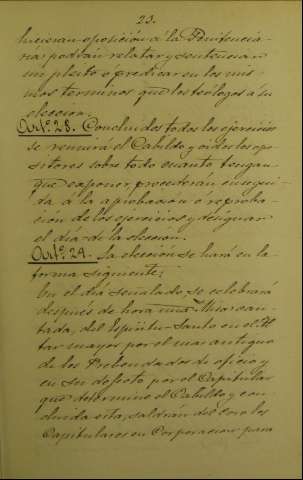 23.
hicieran oposición á la Penitencia-
ría podrán relatar y sentenciar
un pleito ó predicar en los mis-
mos terminos que los teólogos á su
eleccion.
Artº 28. Concluidos todos los ejercicios
se reunirá el Cabildo y oidos los opo-
sitores sobre todo cuanto tengan
que exponer procederán en segui-
da á la aprobacion ó reproba-
cion de los ejercicios y designar
el día de la elección.
Artº 29. La elección se hará en la
forma siguiente;
En el día señalado se celebrará
después de hora una Misa can-
tada, del Espíritu Santo en el Al-
tar mayor por el mas antiguo
de los Prebendados de oficio y
en su defecto por el Capitular
que determine el Cabildo y con-
cluida esta, saldrán del coro los
Capitulares en Corporacion para